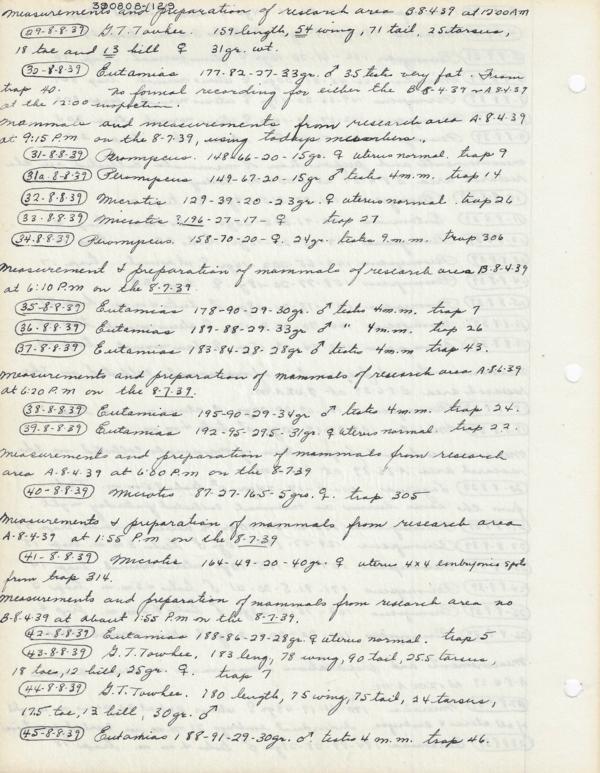 390808/123
Measurements and preparation of research area B.8.4.39 at 12:00 AM
29-8-8-39 G.T. Towhee. 159 length, 54 wing, 71 tail, 25 tarsus,
18 toe and 13 bill ♀ 31gr. wt.
30-8-8-39 Eutamias 177-82-27-33gr ♂ 35 testes very fat. From
trap 40. no formal recording for either the B 8-4-39 or A 8.4.39
at the 12:00 inspection.
Mammals and measurements from research area A.8.4.39
at 9:15 P.M on the 8-7.39, using todays
31-8-8-39 Peromyscus. 148-66-20-15gr. ♀ uterus normal. trap 9
31a.8-8-39 Peromyscus 149-67-20-15gr ♂ testes 4m.m. trap 14
32-8-8-39 Microtis 129-39-20-23gr. ♀ uterus normal. trap 26
33-8-8-39 Microtis ?196-27-17- ♀ trap 27
34.8.8-39 Peromyscus. 158-70-20-♀. 24gr. testes 9.m.m. trap 306
Measurement & preparation of mammals of research area B.8.4.39
at 6:10 P.M on the 8.7.39.
35-8-8-39 Eutamias 178-90-29-30gr. ♂ testes 4m.m. trap 7
36.8-8-39 Eutamias 189-88-29-33gr ♂ " 4m.m. trap 26
37-8-8.39 Eutamias 183-84-28-28gr ♂ testes 4m.m trap 43.
Measurements and preparation of mammals of research area A.86.39
at 6:20 P.M on the 8-7.39.
38-8-8.39 Eutamias 195-90-29-34gr ♂ testes 4m.m. trap 24.
39.8-8-39 Eutamias 192-95-295-31gr. ♀ uterus normal. trap 22.
Measurements and preparation of mammals from research
area A.8.4.39 at 6:00 P.M on the 8-7.39
40-8-8.39 Microtis 87-27-165-5grs. ♀. trap 305
Measurements & preparation of mammals from research area
A-8-4.39 at 1:55 P.M on the 8-7-39.
41-8-8-39 Microtis 164-49-20-40gr. ♀ uterus 4x4 embryonic spots
from trap 314.
Measurements and preparation of mammals from research area no
B-8.4.39 at about 1:55 P.M on the 8-7.39.
42-8-8-39 Eutamias 188-86-29-28gr. ♀ uterus normal. trap 5
43-8-8-39 G.T. Towhee, 183 leng, 78 wing, 90 tail, 255 tarsus,
18 toe, 12 bill, 25gr. ♀. trap 7
44-8-8-39 G.T. Towhee. 180 length, 75 wing, 75 tail, 24 tarsus,
175 toe, 13 bill, 30gr. ♂
45-8-8-39 Eutamias 188-91-29-30gr. ♂ testes 4 m.m. trap 46.